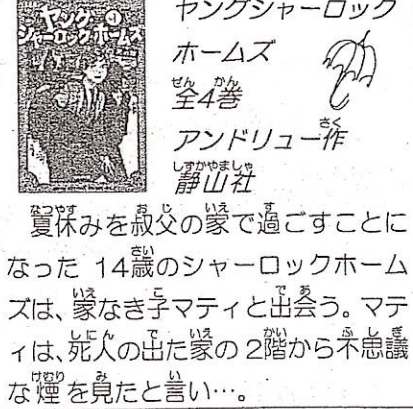 ヤング
シャーロック・ホームズ
ヤングシャーロック
ホームズ
全4巻
アンドリュー作
静山社
夏休みを叔父の家で過ごすことに
なった 14歳のシャーロックホーム
ズは、家なき子マティと出会う。マテ
ィは、死人の出た家の2階から不思議
な煙を見たと言い…。